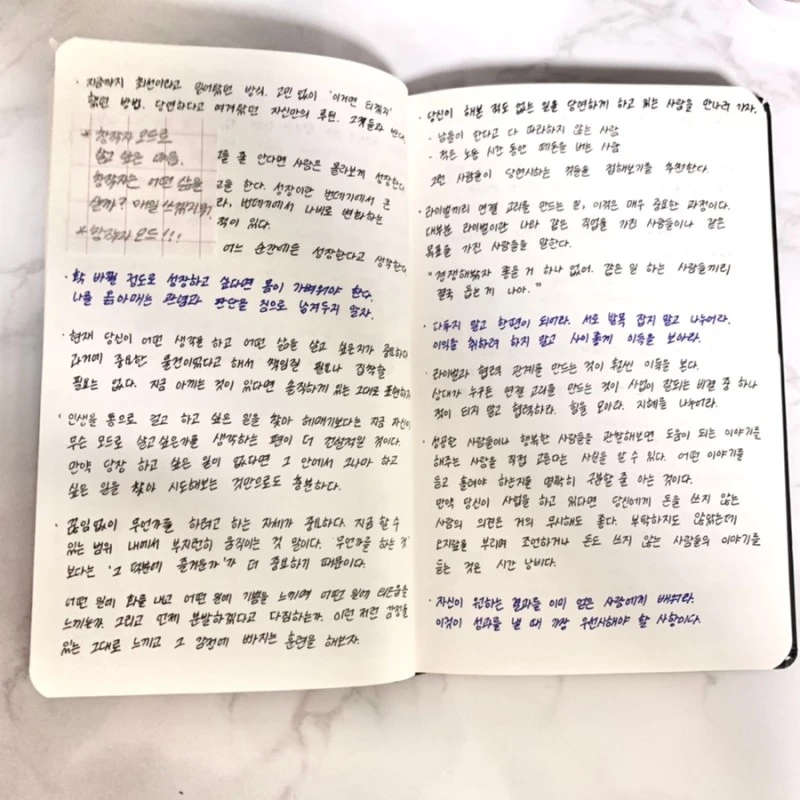 · 지금까지 최선이라고 믿어왔던 방식. 고민 없이 '이거면 되겠지'
했던 방법. 당연하다고 여겨왔던 자신만의 루틴. 그것들과
* 창작자 모드로
살고 싶은 마음.
창작자는 어떤 삶을
살까? 매일
* 창작자 모드!!!
줄 안다면 사람은 몰라보게 성장한다
을 한다. 성장이란 번데기에서 큰
라, 번데기에서 나비로 변화하는
적이 있다.
어느 순간에든 성장한다고 생각한다
· 확 바뀔 정도로 성장하고 싶다면 몸이 가벼워야 한다.
나를 옭아매는 관념과 판단을 짐으로 남겨두지 말자.
· 현재 당신이 어떤 생각을 하고 어떤 삶을 살고 싶은지가 중요하다
과거에 중요한 물건이었다고 해서 책임질 필요나 집착할
필요는 없다. 지금 아끼는 것이 있다면 솔직하게 있는 그대로 표현하자
· 인생을 통으로 걸고 하고 싶은 일을 찾아 헤매기보다는 지금 자신이
무슨 모드로 살고싶은가를 생각하는 편이 더 건설적일 것이다.
만약 당장 하고 싶은 일이 없다면 그 안에서 그나마 하고
싶은 일을 찾아 시도해보는 것만으로도 충분하다.
· 끊임없이 무언가를 하려고 하는 자체가 중요하다. 지금 할 수
있는 범위 내에서 부지런히 움직이는 것 말이다. '무언가를 하는 것'
보다는 '그 덕분에 즐거운가'가 더 중요하기 때문이다.
어떤 일에 화를 내고 어떤 일에 기쁨을 느끼며 어떤 일에
느끼는가. 그리고 언제 분발하겠다고 다짐하는가. 이런 저런 감정을
있는 그대로 느끼고 그 감정에 빠지는 훈련을 해보자.
· 당신이 해본 적도 없는 일을 당연하게 하고 있는 사람을 만나러 가자.
- 남들이 한다고 다 따라하지 않는 사람
- 적은 노동 시간 동안 떼돈을 버는 사람
그런 사람들이 당연시하는 것들을 접해보기를 추천한다.
· 라이벌끼리 연결 고리를 만드는 일, 이것은 매우 중요한 과정이다.
대부분 라이벌이란 나와 같은 직업을 가진 사람들이나 같은
목표를 가진 사람들을 말한다.
"경쟁해봤자 좋을 거 하나 없어. 같은 일 하는 사람들끼리
결국 돕는게 나아."
· 다투지 말고 한편이 되어라. 서로 발목 잡지 말고 나누어라.
이익을 취하려 하지 말고 사이 좋게 이득을 보아라.
· 라이벌과 협력 관계를 만드는 것이 훨씬 이득을 본다.
상대가 누구든 연결 고리를 만드는 것이 사업이 잘되는 비결 중 하나
적이 되지 말고 협력하라. 힘을 모아라. 지혜를 나누어라.
· 성공한 사람들이나 행복한 사람들을 관찰해보면 도움이 되는 이야기를
해주는 사람을 직접 고른다는 사실을 알 수 있다. 어떤 이야기를
듣고 흘려야 하는지를 명확히 구분할 줄 아는 것이다.
만약 당신이 사업을 하고 있다면 당신에게 돈을 쓰지 않는
사람의 의견은 거의 무시해도 좋다. 부탁하지도 않았는데
오지랖을 부리며 조언하거나 돈도 쓰지 않는 사람들의 이야기를
듣는 것은 시간 낭비다.
· 자신이 원하는 결과를 이미 얻은 사람에게 배워라.
이것이 성과를 낼 때 가장 우선시해야 할 사항이다.